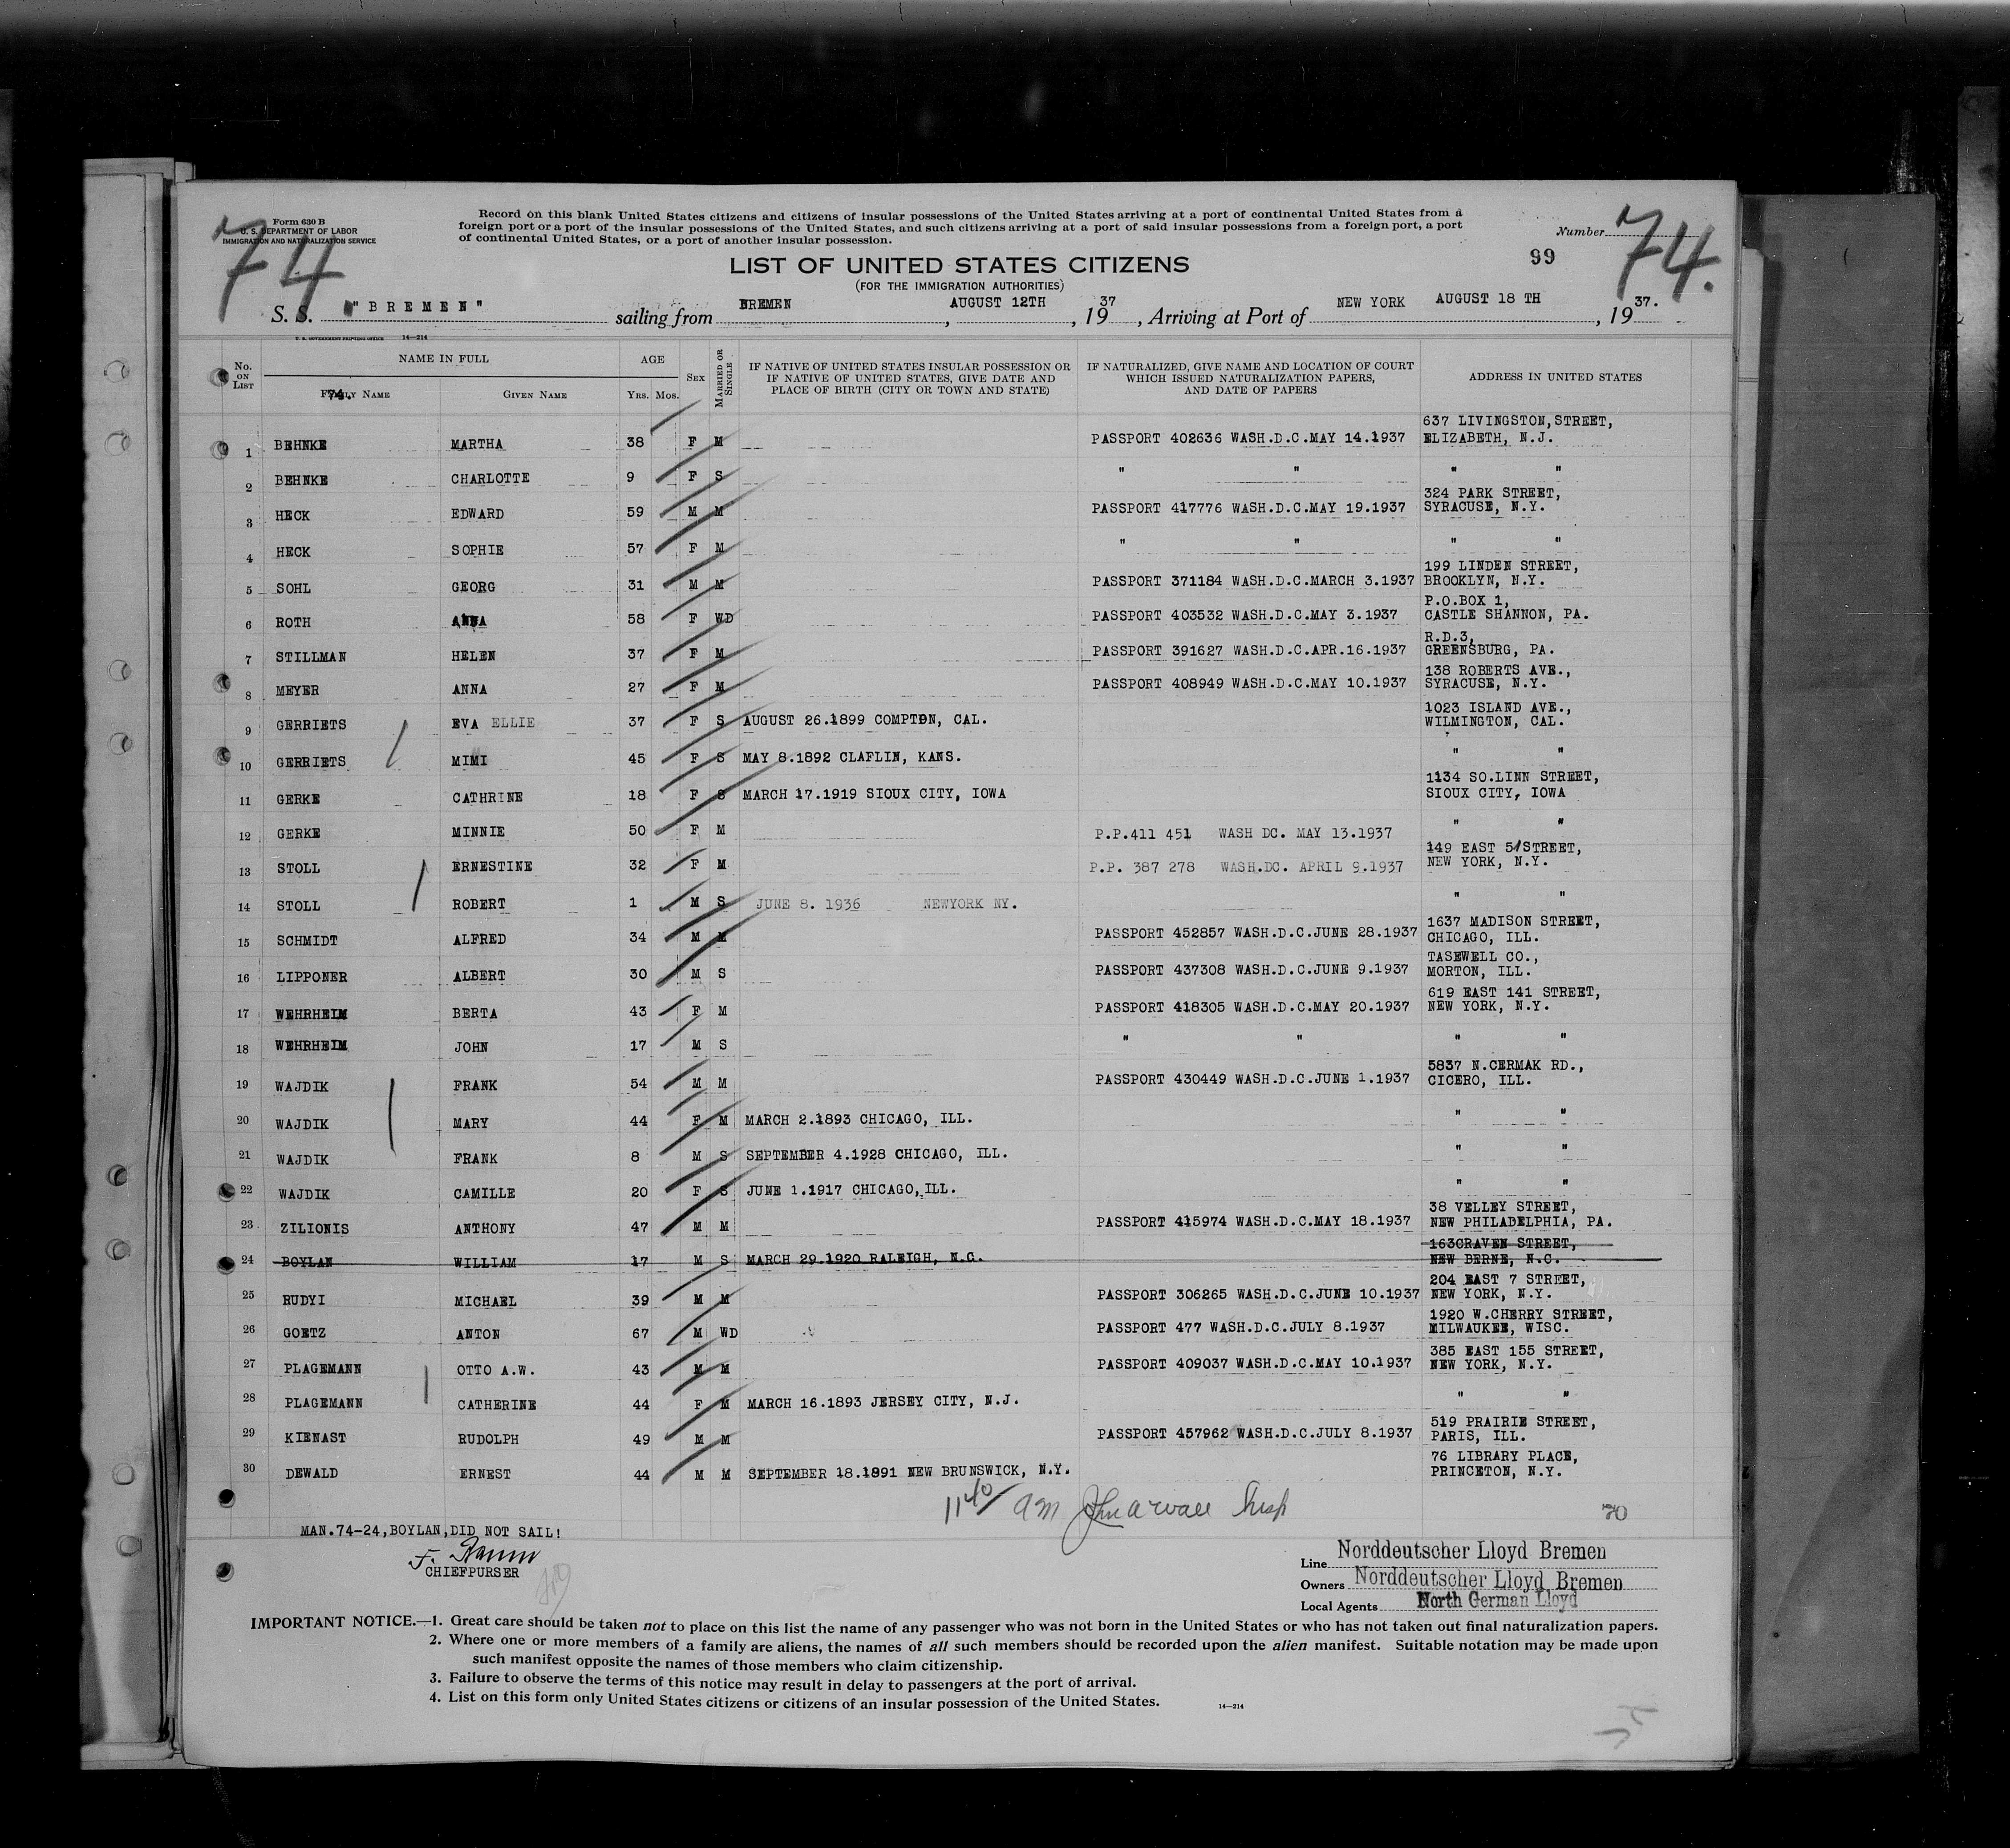 74 74.
Form 630 B
U. S. DEPARTMENT OF LABOR
IMMIGRATION AND NATURALIZATION SERVICE
Record on this blank United States citizens and citizens of insular possessions of the United States arriving at a port of continental United States from a
foreign port or a port of the insular possessions of the United States, and such citizens arriving at a port of said insular possessions from a foreign port, a port
of continental United States, or a port of another insular possession.
Number
99
LIST OF UNITED STATES CITIZENS
(FOR THE IMMIGRATION AUTHORITIES)
S. S. "BREMEN" sailing from BREMEN, AUGUST 12TH, 1937, Arriving at Port of NEW YORK AUGUST 18 TH, 1937.
U. S. GOVERNMENT PRINTING OFFICE 14—214
No. ON LIST NAME IN FULL AGE SEX MARRIED OR SINGLE IF NATIVE OF UNITED STATES INSULAR POSSESSION OR IF NATIVE OF UNITED STATES, GIVE DATE AND PLACE OF BIRTH (CITY OR TOWN AND STATE) IF NATURALIZED, GIVE NAME AND LOCATION OF COURT WHICH ISSUED NATURALIZATION PAPERS, AND DATE OF PAPERS ADDRESS IN UNITED STATES
74. FAMILY NAME GIVEN NAME YRS. MOS.
1 BEHNKE MARTHA 38 F M PASSPORT 402636 WASH.D.C.MAY 14.1937 637 LIVINGSTON,STREET, ELIZABETH, N.J.
2 BEHNKE CHARLOTTE 9 F S " " " "
3 HECK EDWARD 59 M M PASSPORT 417776 WASH.D.C.MAY 19.1937 324 PARK STREET, SYRACUSE, N.Y.
4 HECK SOPHIE 57 F M " " " "
5 SOHL GEORG 31 M M PASSPORT 371184 WASH.D.C.MARCH 3.1937 199 LINDEN STREET, BROOKLYN, N.Y.
6 ROTH ANNA 58 F WD PASSPORT 403532 WASH.D.C.MAY 3.1937 P.O.BOX 1, CASTLE SHANNON, PA.
7 STILLMAN HELEN 37 F M PASSPORT 391627 WASH.D.C.APR.16.1937 R.D.3, GREENSBURG, PA.
8 MEYER ANNA 27 F M PASSPORT 408949 WASH.D.C.MAY 10.1937 138 ROBERTS AVE., SYRACUSE, N.Y.
9 GERRIETS EVA ELLIE 37 F S AUGUST 26.1899 COMPTON, CAL. 1023 ISLAND AVE., WILMINGTON, CAL.
10 GERRIETS MIMI 45 F S MAY 8.1892 CLAFLIN, KANS. " "
11 GERKE CATHRINE 18 F S MARCH 17.1919 SIOUX CITY, IOWA 1134 SO.LINN STREET, SIOUX CITY, IOWA
12 GERKE MINNIE 50 F M P.P.411 451 WASH DC. MAY 13.1937 " "
13 STOLL ERNESTINE 32 F M P.P. 387 278 WASH.DC. APRIL 9.1937 149 EAST 51STREET, NEW YORK, N.Y.
14 STOLL ROBERT 1 M S JUNE 8. 1936 NEWYORK NY. " "
15 SCHMIDT ALFRED 34 M M PASSPORT 452857 WASH.D.C.JUNE 28.1937 1637 MADISON STREET, CHICAGO, ILL.
16 LIPPONER ALBERT 30 M S PASSPORT 437308 WASH.D.C.JUNE 9.1937 TASEWELL CO., MORTON, ILL.
17 WEHRHEIM BERTA 43 F M PASSPORT 418305 WASH.D.C.MAY 20.1937 619 EAST 141 STREET, NEW YORK, N.Y.
18 WEHRHEIM JOHN 17 M S " " " "
19 WAJDIK FRANK 54 M M PASSPORT 430449 WASH.D.C.JUNE 1.1937 5837 N.CERMAK RD., CICERO, ILL.
20 WAJDIK MARY 44 F M MARCH 2.1893 CHICAGO, ILL. " "
21 WAJDIK FRANK 8 M S SEPTEMBER 4.1928 CHICAGO, ILL. " "
22 WAJDIK CAMILLE 20 F S JUNE 1.1917 CHICAGO,ILL. " "
23 ZILIONIS ANTHONY 47 M M PASSPORT 415974 WASH.D.C.MAY 18.1937 38 VELLEY STREET, NEW PHILADELPHIA, PA.
24 BOYLAN WILLIAM 17 M S MARCH 29.1920 RALEIGH, N.C. 163CRAVEN STREET, NEW BERNE, N.C.
25 RUDYI MICHAEL 39 M M PASSPORT 306265 WASH.D.C.JUNE 10.1937 204 EAST 7 STREET, NEW YORK, N.Y.
26 GOETZ ANTON 67 M WD PASSPORT 477 WASH.D.C.JULY 8.1937 1920 W.CHERRY STREET, MILWAUKEE, WISC.
27 PLAGEMANN OTTO A.W. 43 M M PASSPORT 409037 WASH.D.C.MAY 10.1937 385 EAST 155 STREET, NEW YORK, N.Y.
28 PLAGEMANN CATHERINE 44 F M MARCH 16.1893 JERSEY CITY, N.J. " "
29 KIENAST RUDOLPH 49 M M PASSPORT 457962 WASH.D.C.JULY 8.1937 519 PRAIRIE STREET, PARIS, ILL.
30 DEWALD ERNEST 44 M M SEPTEMBER 18.1891 NEW BRUNSWICK, N.Y. 76 LIBRARY PLACE, PRINCETON, N.Y.
11 40 am Insp
MAN.74-24,BOYLAN,DID NOT SAIL!
F.
CHIEFPURSER
Line Norddeutscher Lloyd Bremen
Owners Norddeutscher Lloyd Bremen
Local Agents North German Lloyd
IMPORTANT NOTICE.—1. Great care should be taken not to place on this list the name of any passenger who was not born in the United States or who has not taken out final naturalization papers.
2. Where one or more members of a family are aliens, the names of all such members should be recorded upon the alien manifest. Suitable notation may be made upon
such manifest opposite the names of those members who claim citizenship.
3. Failure to observe the terms of this notice may result in delay to passengers at the port of arrival.
4. List on this form only United States citizens or citizens of an insular possession of the United States.
14—214